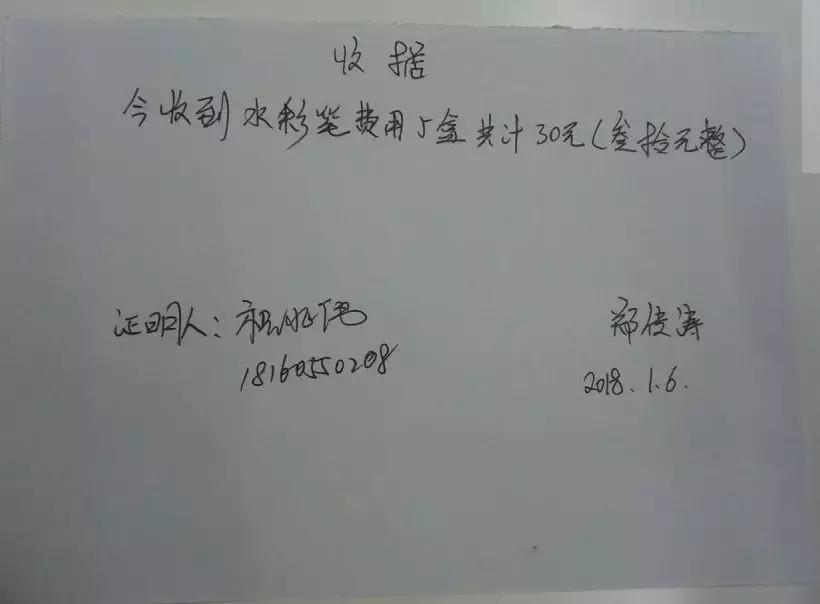 收据
今收到水彩笔费用5盒共计30元(叁拾元整)
证明人:
郑俊涛
18160550208
2018.1.6.